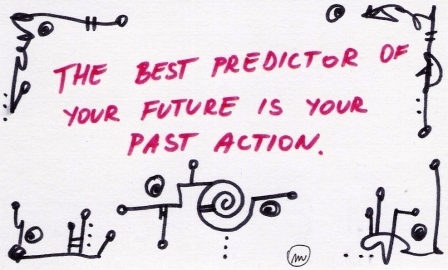 THE BEST PREDICTOR OF
YOUR FUTURE IS YOUR
PAST ACTION.